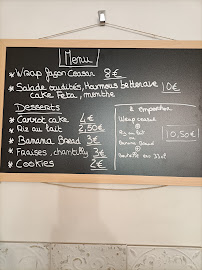 Menu
* Wrap façon Ceasar 8€
* Salade crudités, Houmous betterave
cake Feta, menthe 10€
Desserts
* Carrot cake 4€
* Riz au lait 2,50€
* Banana Bread 3€
* Fraises, chantilly 3€
* Cookies 2€
Wrap ceasar
Riz au lait
ou
Banana Bread
Bouteille eau 33cl
10,50€